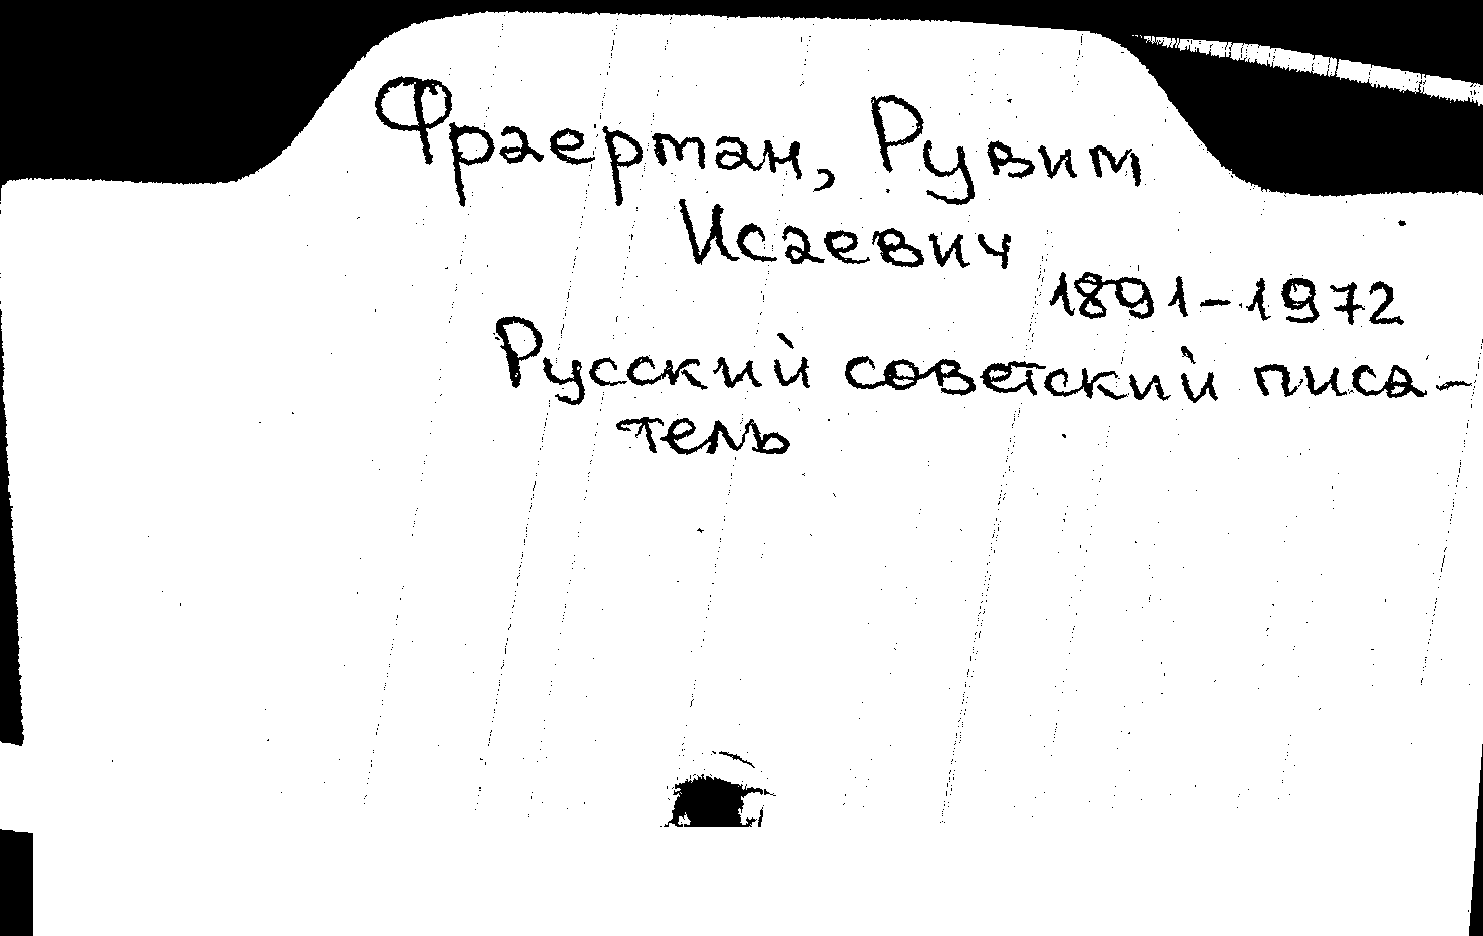 Фраерман, Рувим
Исаевич
1891-1972
Русский советский писа-
тель